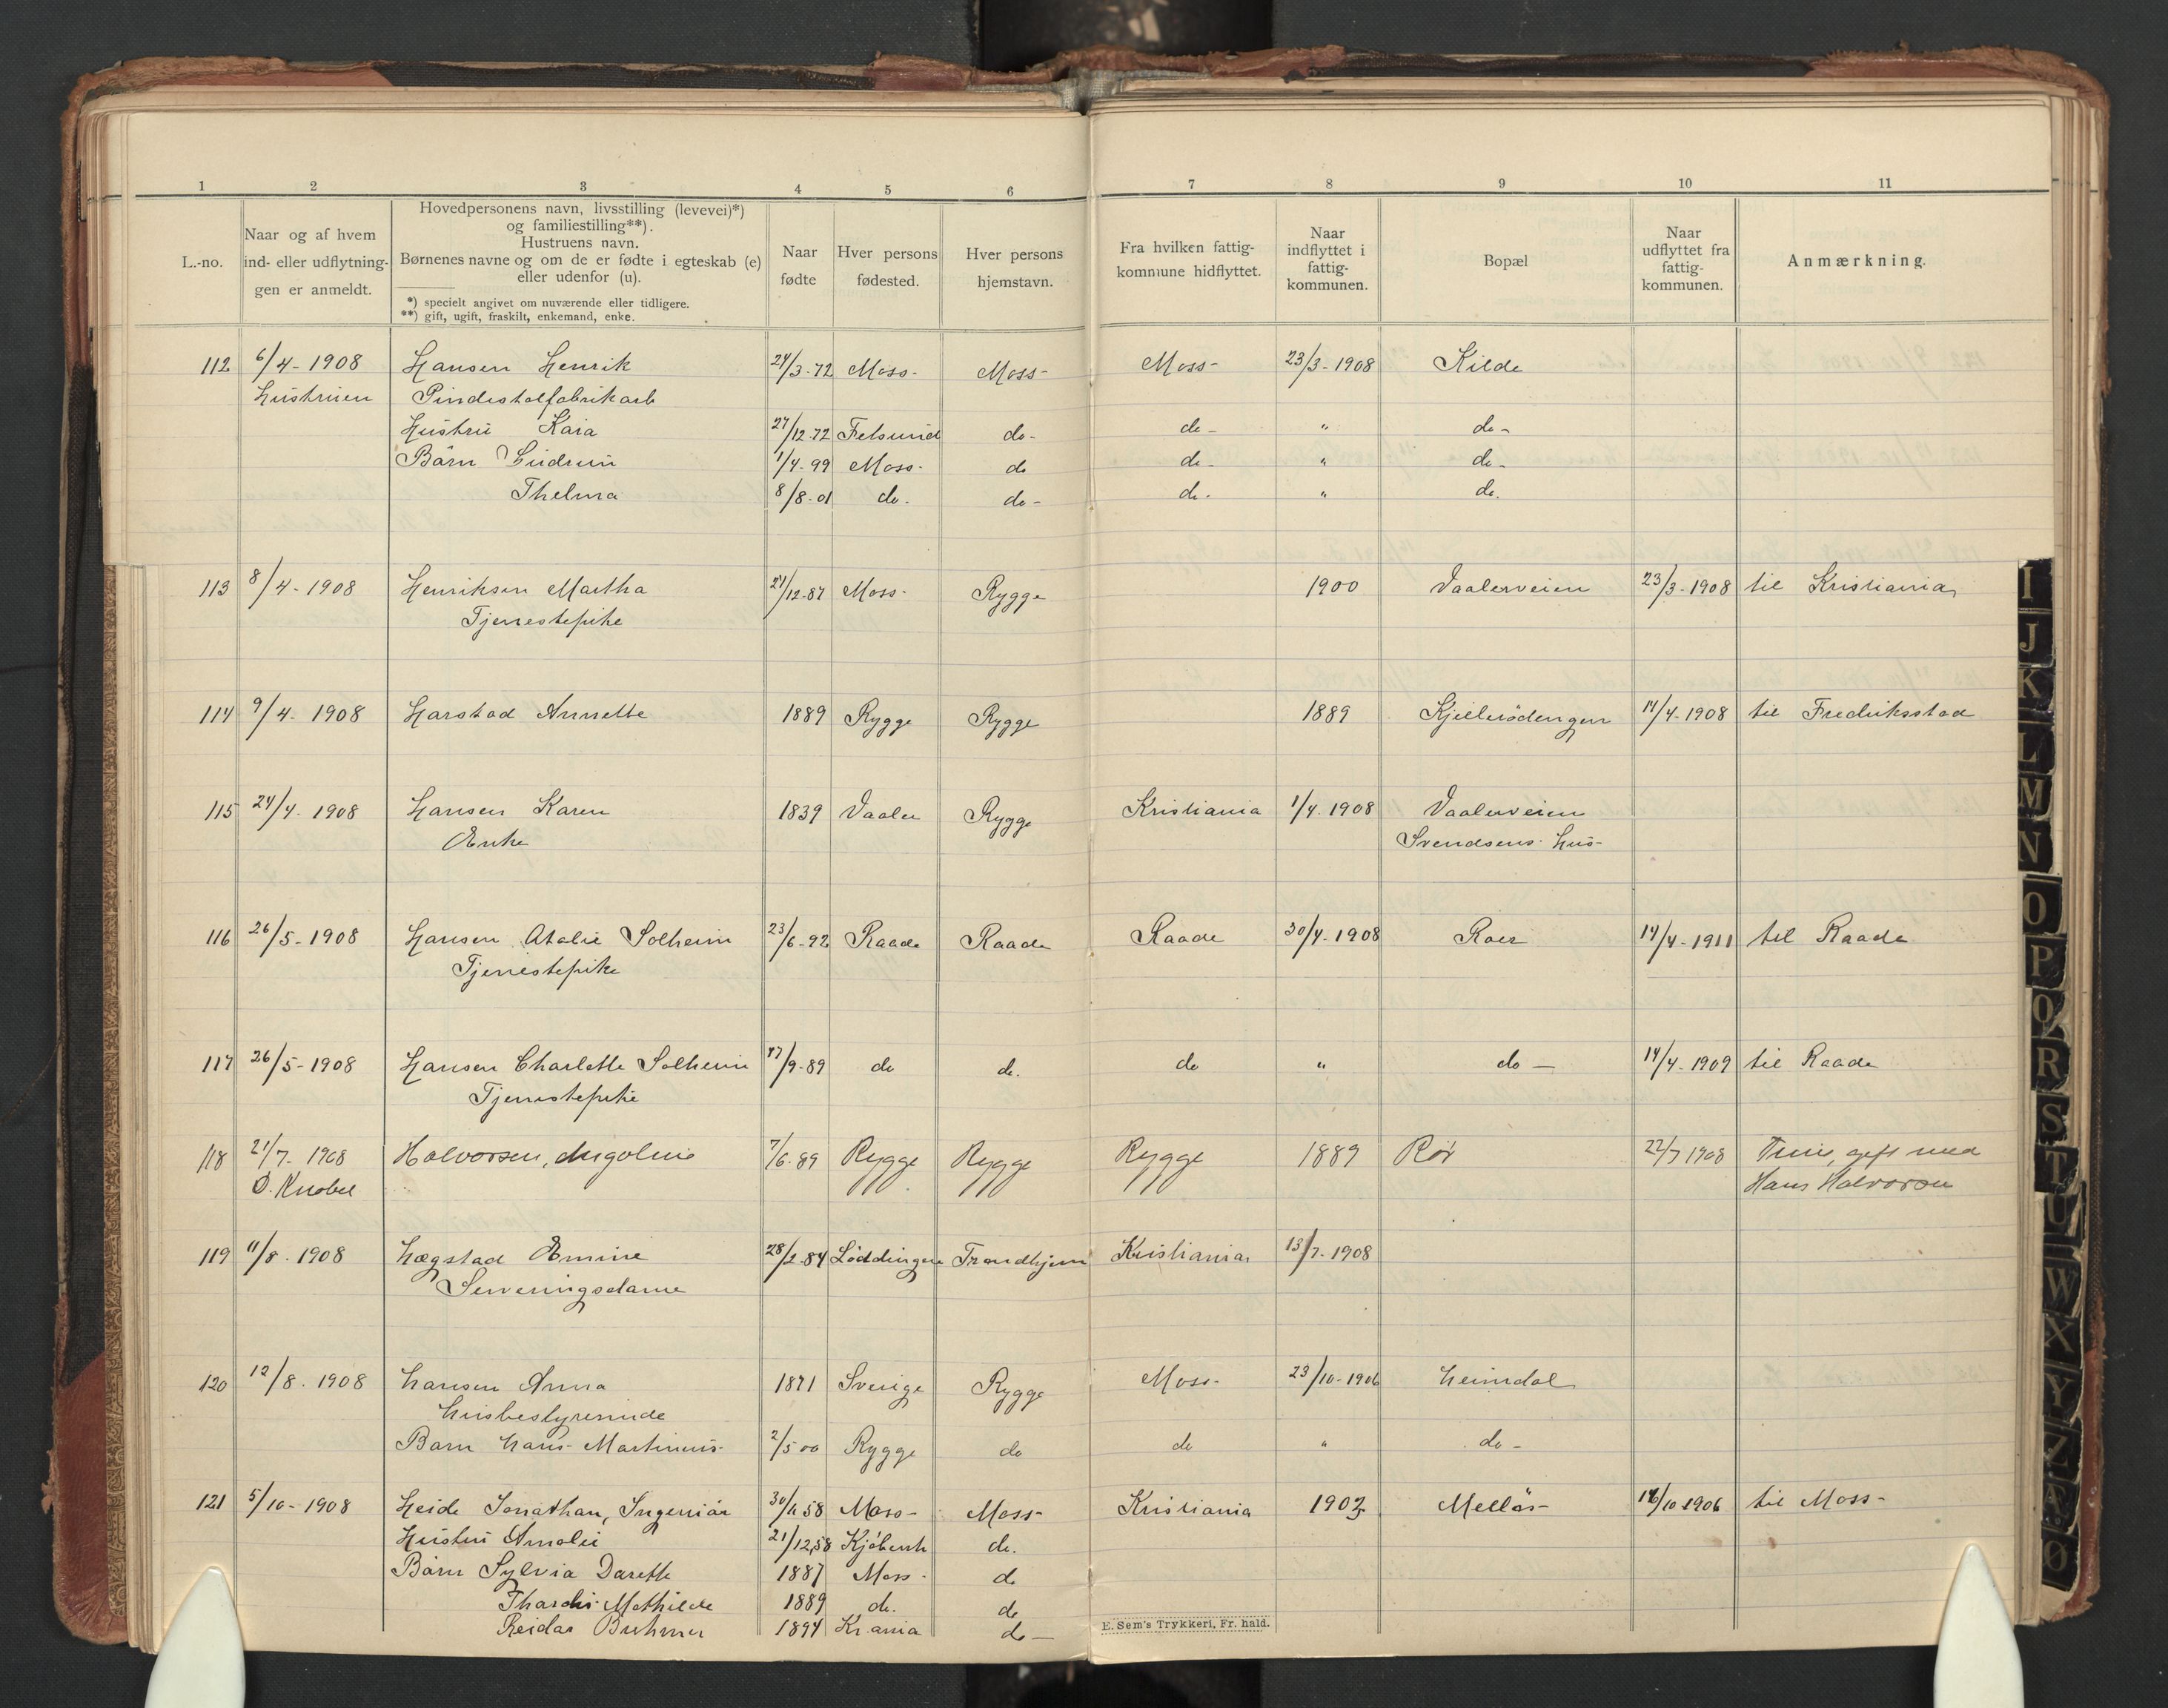 1 2 3 4 5 6 7 8 9 10 11
L.-no.
Naar og af hvem
ind- eller udflytnin-
gen er anmeldt.
Hovedpersonens navn, livsstilling (levevei)*)
og familiestilling**).
Hustruens navn.
Børnenes navne og om de er fødte i egteskab (e)
eller udenfor (u).
*) specielt angivet om nuværende eller tidligere.
**) gift, ugift, fraskilt, enkemand, enke.
Naar
fødte
Hver persons
fødested.
Hver persons
hjemstavn.
Fra hvilken fattig-
kommune hidflyttet.
Naar
indflyttet i
fattig-
kommunen.
Bopæl
Naar
udflyttet fra
fattig-
kommunen.
Anmærkning.
112 6/4-1908 Hansen Henrik 24/3-72 Moss- Moss- Moss- 23/3-1908 Kilde
Hustruen Pindestolfabrikarb
Hustru Kaia 27/12-72 Felsund do- do- " do-
Børn Gudrun 1/4-99 Moss- do do- " do-
Thelma 8/8-01 do. do- do- " do.
113 8/4-1908 Henriksen Martha 21/12-87 Moss- Rygge 1900 Vaalerveien 23/3-1908 til Kristiania
Tjenestepike
114 9/4-1908 Harstad Annette 1889 Rygge Rygge 1889 Kjellerödengen 11/4-1908 til Fredriksstad
115 24/4-1908 Hansen Karen 1839 Vaaler Rygge Kristiania 1/4-1908 Vaalerveien
Enke Svendsens Hus-
116 26/5-1908 Hansen Atalie Solheim 23/6-92 Raade Raade Raade 30/4-1908 Roer 14/4-1911 til Raade
Tjenestepike
117 26/5-1908 Hansen Charlotte Solheim 17/9-89 do do. do " do— 14/4-1909 til Raade
Tjenestepike
118 21/7-1908 Halvorsen, 7/6-89 Rygge Rygge Rygge 1889 Rör 22/7 1908 Tune, gift med
O. Knobel Hans Halvorsen
119 11/8-1908 Hægstad Emine 28/2-84 Löddingen Trondhjem Kristiania 13/7-1908
Serveringsdame
120 12/8-1908 Hansen Anna 1871 Sverige Rygge Moss- 23/10-1906 Heimdal
Husbestyrerinde
Barn Hans Martinius- 2/5 00 Rygge do do " do-
121 5/10-1908 Heide Jonathan, Ingeniør 30/11 58 Moss- Moss- Kristiania 1903 Mellös- 16/10 1906 til Moss-
Hustru Amalie 21/12,58 Kjøbenh do.
Børn Sylvia Dorette 1887 Moss- do
Mathilde 1889 do. do
Reidar 1894 Kr.ania do—
E. Sem's Trykkeri, Fr. hald.
I
J
K
L
M
N
O
P
Q
R
S
T
U
W
X
Y
Z
Æ
Ø